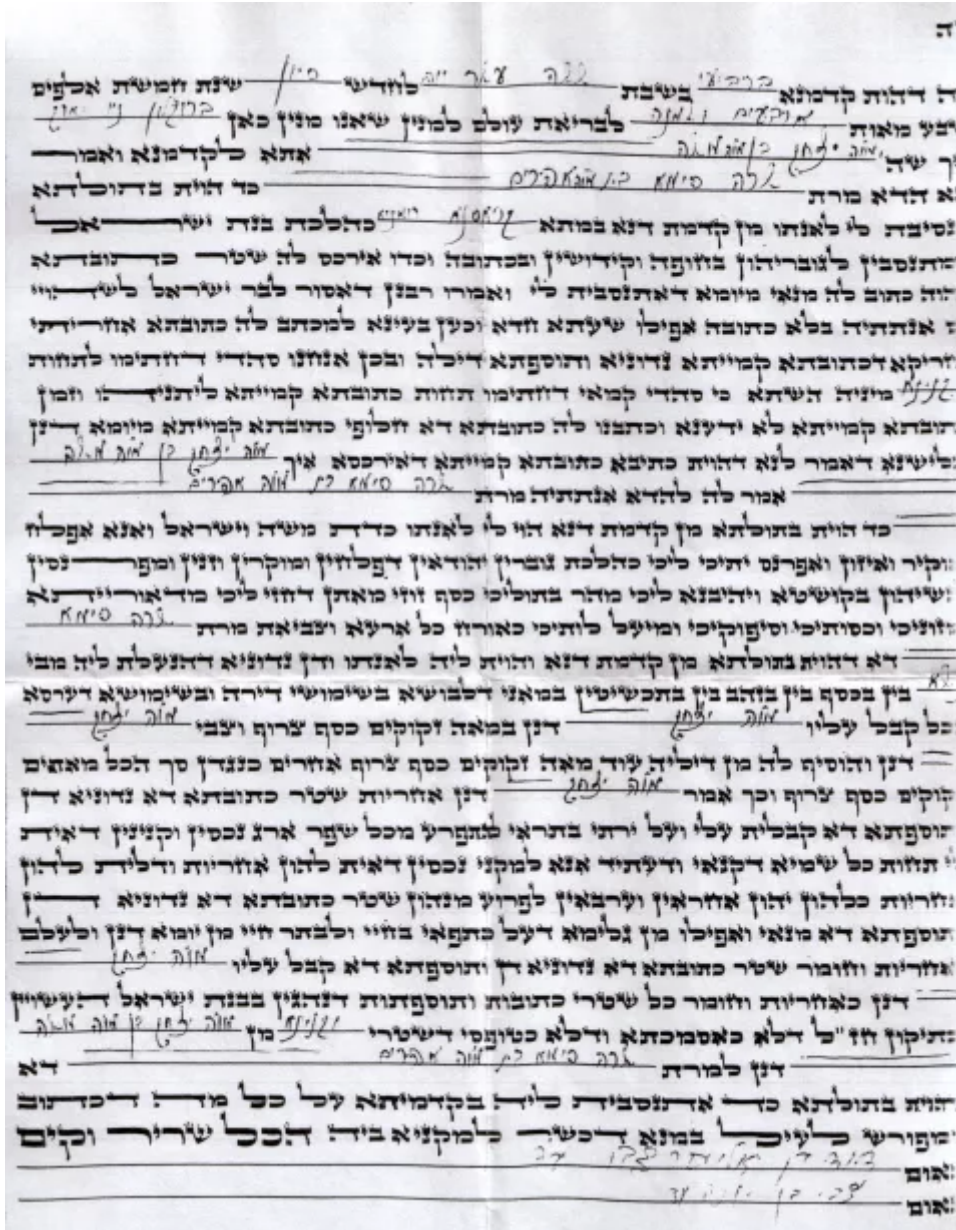 ה
דהות קדמנא ברביעי בשבת יום לחדש סיון שנת חמשת אלפים
מאות ארבעים לבריאת עולם למנין שאנו מנין כאן ברוקלין
איך יצחק בן אתא לקדמנא ואמר
הדא מרת שרה סימא בת אפרים כד הוית בתולתא
נסיבת לי לאנתו מן קדמת דנא במתא כהלכת בנת ישראל
מתנסבין לגובריהון בחופה וקידושין ובכתובה וכדו אירכס לה שטר כתובתא
כתוב לה מנאי מיומא דאתנסבית לי ואמרו רבנן דאסור לבר ישראל לשהויי
אנתתיה בלא כתובה אפילו שעתא חדא וכען בעינא למכתב לה כתובתא אחריתי
חריקא דכתובתא קמייתא נדוניא ותוספתא דילה ובכן אנחנו סהדי דחתימו לתחות
מיניה השתא כי סהדי קמאי דחתימו תחות כתובתא קמייתא ליתניהו וזמן
כתובתא קמייתא לא ידענא וכתבנו לה כתובתא דא חלופי כתובתא קמייתא מיומא דנן
בלישנא דאמר לנא דהוית כתיבא כתובתא קמייתא דאירכסא איך משה יצחק בן משה
אמר לה להדא אנתתיה מרת שרה סימא בת משה אפרים
כד הוית בתולתא מן קדמת דנא הוי לי לאנתו כדת משה וישראל ואנא אפלח
ואוקיר ואיזון ואפרנס יתיכי ליכי כהלכת גוברין יהודאין דפלחין ומוקרין וזנין ומפרנסין
נשיהון בקושטא ויהיבנא ליכי מהר בתוליכי כסף זוזי מאתן דחזי ליכי מדאורייתא
מזוניכי וכסותיכי וסיפוקיכי ומיעל לותיכי כאורח כל ארעא וצביאת מרת שרה סימא
דא דהוית בתולתא מן קדמת דנא והוית ליה לאנתו ודן נדוניא דהנעלת ליה מבי
בין בכסף בין בזהב בין בתכשיטין במאני דלבושא בשימושי דירה ובשימושא דערסא
הכל קבל עליו משה יצחק דנן במאה זקוקים כסף צרוף וצבי משה יצחק
דנן והוסיף לה מן דיליה עוד מאה זקוקים כסף צרוף אחרים כנגדן סך הכל מאתים
זקוקים כסף צרוף וכך אמר משה יצחק דנן אחריות שטר כתובתא דא נדוניא דן
ותוספתא דא קבלית עלי ועל ירתי בתראי להתפרע מכל שפר ארג נכסין וקנינין דאית
לי תחות כל שמיא דקנאי ודעתיד אנא למקני נכסין דאית להון אחריות ודלית להון
אחריות כלהון יהון אחראין וערבאין לפרוע מנהון שטר כתובתא דא נדוניא דן
ותוספתא דא מנאי ואפילו מן גלימא דעל כתפאי בחיי ולבתר חיי מן יומא דנן ולעלם
אחריות וחומר שטר כתובתא דא נדוניא דן ותוספתא דא קבל עליו משה יצחק
דנן כאחריות וחומר כל שטרי כתובות ותוספתות דנהגין בבנת ישראל העשוין
כתיקון חז"ל דלא כאסמכתא ודלא כטופסי דשטרי וקנינא מן משה יצחק בן משה
דנן למרת שרה סימא בת משה אפרים דא
דהוית בתולתא כד אתנסבית ליה בקדמיתא על כל מה דכתוב
ומפורש לעיל במנא דכשר למקניא ביה הכל שריר וקים
נאום דוד בן עד
נאום צבי בן עד